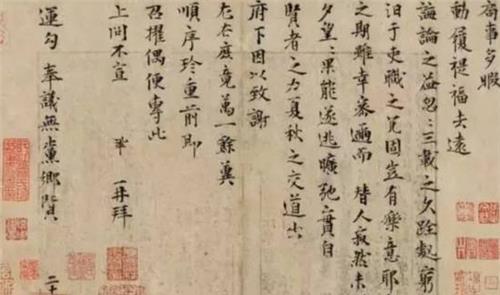 局事多暇
動履禔福去遠
誨論之益忽忽三載之久跧處窮
汨于吏職之冗固豈有樂意耶
之期雖幸密邇而替人寂然未
夕望望果能遂逃曠弛實自
賢者之力夏秋之交道出
府下因以致謝
左右庶竟萬一餘冀
順序珍重前即
召擢偶便專此
上問不宣 鞏再拜
運勾奉議無黨鄉賢
二十